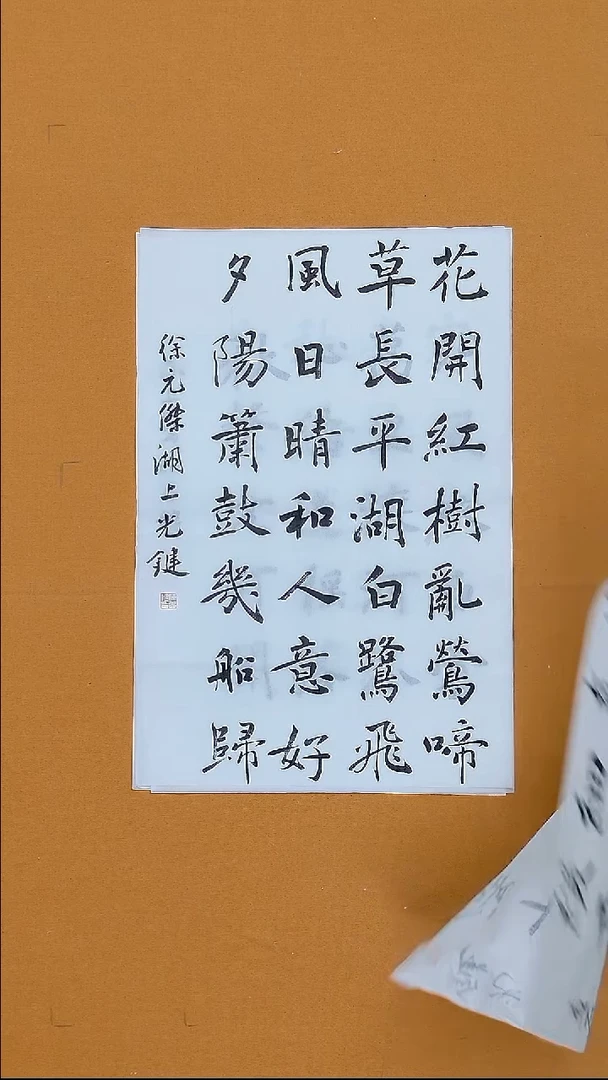 花開紅樹亂鶯啼
草長平湖白鷺飛
風日晴和人意好
夕陽簫鼓幾船歸
徐元傑湖上光鍵